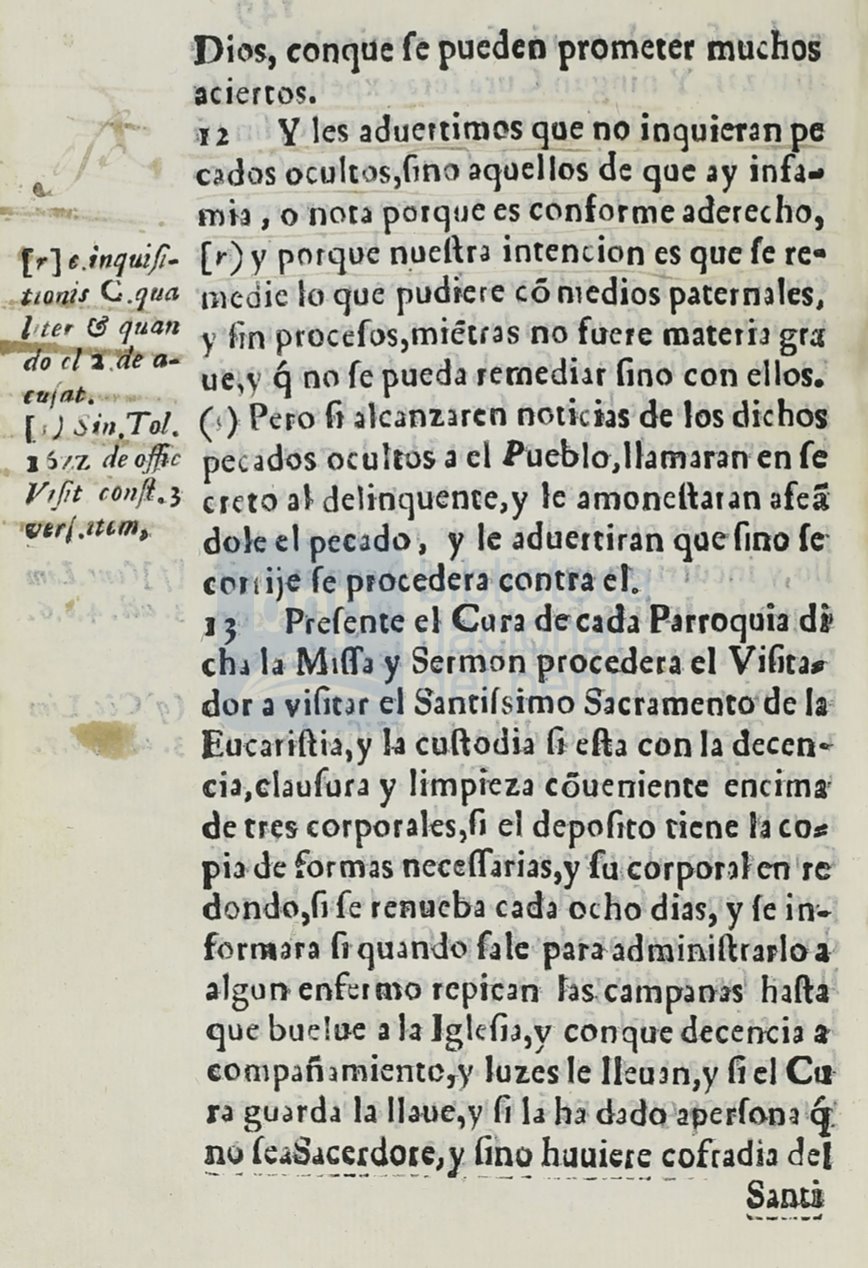 Dios, conque ſe pueden prometer muchos
aciertos.
12 Y les aduertimos que no inquieran pe
cados ocultos,ſino aquellos de que ay infa-
mia , o nota porque es conforme aderecho,
[r) y porque nueſtra intencion es que ſe re-
medie lo que pudiere cõ medios paternales,
y ſin proceſos,miẽtras no fuere materia gra
ue,y q́ no ſe pueda remediar ſino con ellos.
(s) Pero ſi alcanzaren noticias de los dichos
pecados ocultos a el Pueblo,llamaran en ſe
creto al delinquente,y le amoneſtaran afeã
dole el pecado , y le aduertiran que ſino ſe
corrije ſe procedera contra el.
13 Preſente el Cura de cada Parroquia di
cha la Miſſa y Sermon procedera el Viſita-
dor a viſitar el Santiſsimo Sacramento de la
Eucariſtia,y la cuſtodia ſi eſta con la decen-
cia,clauſura y limpieza cõueniente encima
de tres corporales,ſi el depoſito tiene la co-
pia de formas neceſſarias,y ſu corporal en re
dondo,ſi ſe renueba cada ocho dias, y ſe in-
formara ſi quando ſale para adminiſtrarlo a
algun enfermo repican las campanas haſta
que buelue a la Igleſia,y conque decencia a
compañamiento,y luzes le lleuan,y ſi el Cu
ra guarda la llaue,y ſi la ha dado aperſona q́
no ſeaSacerdote,y ſino huuiere cofradia del
Santi
[r] c.inquiſi-
tionis C.qua
liter & quan
do el 2 de a-
cuſat.
[s) Sin.Tol.
de offic
Viſit conſt.3
verſ.item,